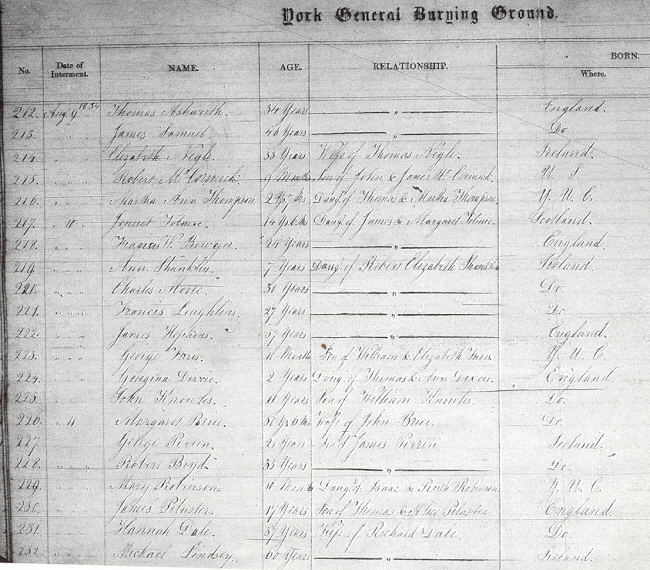 York General Burying Ground.
No. Date of Interment. NAME. AGE. RELATIONSHIP. BORN. Where.
212. Aug 9 1834 Thomas Ashworth. 34 Years " England.
213. " " James Samuel 46 Years " Do.
214. " " Elizabeth Nagle 35 Years Wife of Thomas Nagle. Ireland.
215. " " Robert McCormick 9 Months Son of John & Jane McCormick U S
216. " " Martha Ann Thompson Daug. of Thomas & Martha Thompson Y. U. C.
217. " 10 Jennet Daug. of James & Margaret Scotland.
218. " " Francis Years " England.
219. " " Ann Shanklin 7 Years Daug. of Robert Elizabeth Shanklin Ireland.
220. " " Charles 30 Years " Do.
221. " " Francis Loughlin 27 Years " Do.
222. " " James Hopkins 37 Years " England.
223. " " George Months Son of William & Elizabeth Y. U. C.
224. " " Georgina 2 Years Daug. of Thomas & Ann England
225. " " John Knowles 11 Years Son of William Knowles Do.
226. " 11 Margaret Wife of John Do.
227. " " George Years James Ireland.
228. " " Robert Boyd 35 Years " Do.
229. " " Mary Robinson. Months Daug. of Isaac & Ruth Robinson Y. U. C.
230. " " James Years Son of Thomas & Alice England
231. " " Hannah Dale. 37 Years Wife of Richard Dale. Do.
232. " " Michael Lindsey 60 Years Ireland.